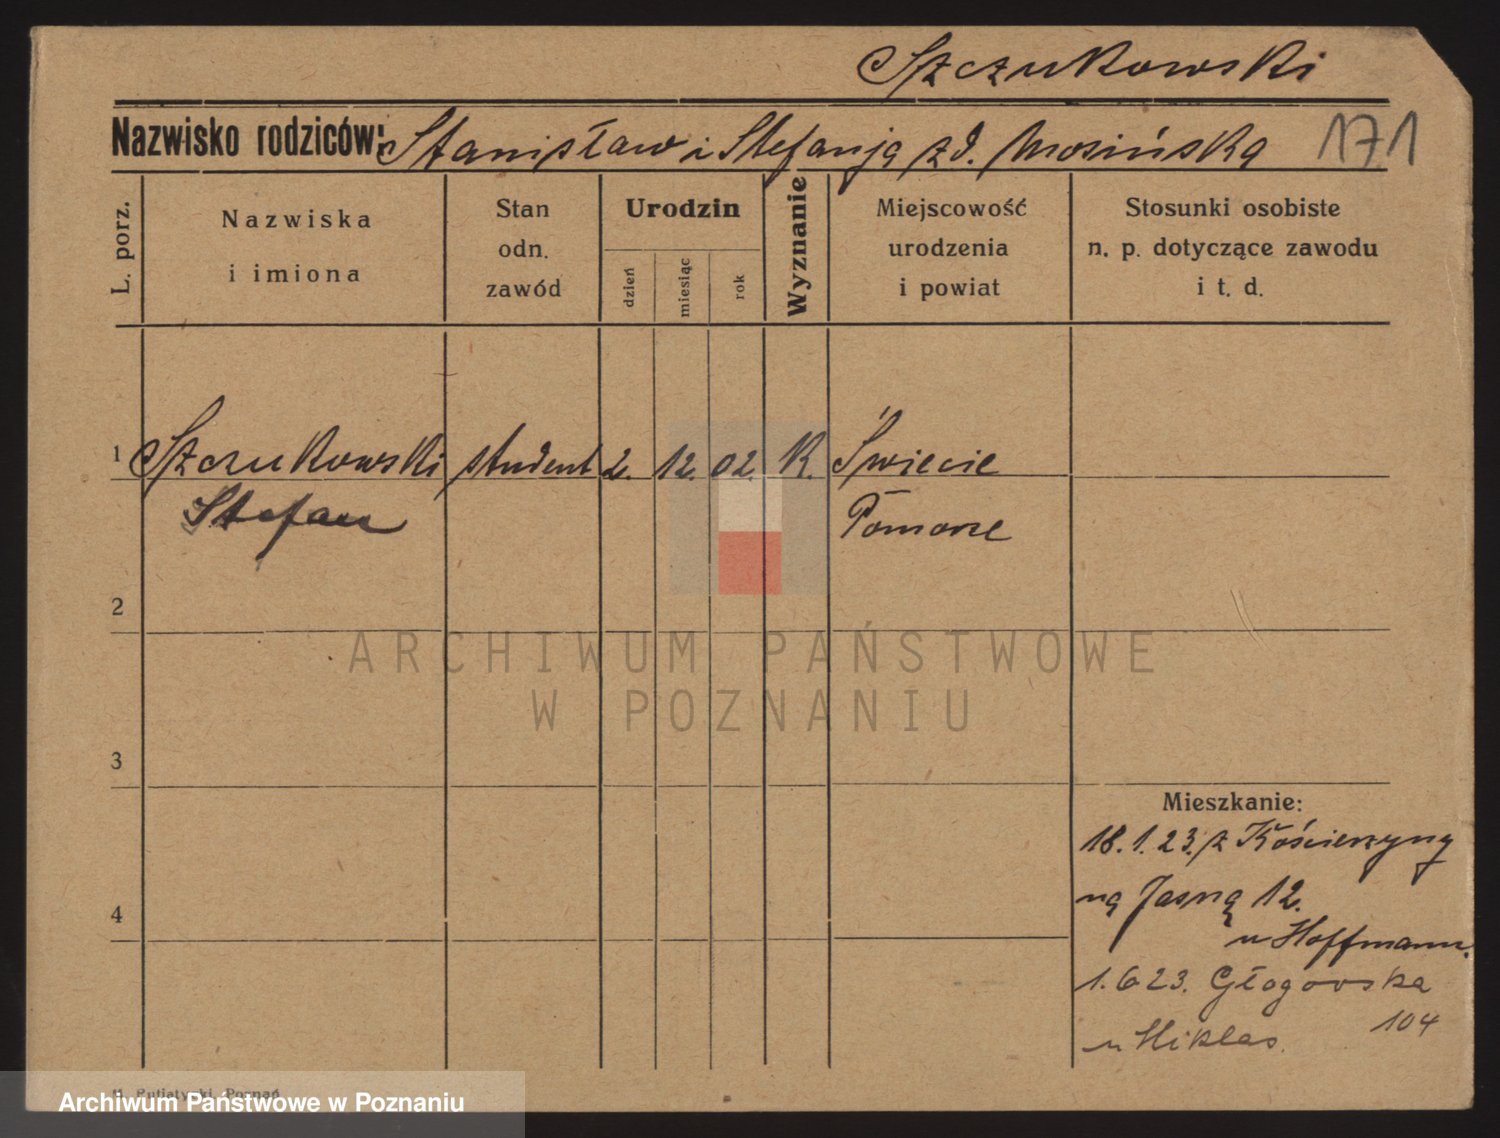 Szczukowski
Nazwisko rodziców: Stanisław i Stefanja z d. Mosińska 171
L. porz.
Nazwiska
i imiona
Stan
odn.
zawód
Urodzin
dzień
miesiąc
rok
Wyznanie
Miejscowość
urodzenia
i powiat
Stosunki osobiste
n. p. dotyczące zawodu
i t. d.
1 Szczukowski student 2. 12. 02. K. Świecie
Stefan Pomorze
2
3
4
Mieszkanie:
18.1.23. z Kościerzyny
na Jasną 12.
u Hoffmann.
1.6 23. Głogowska
104
u Miklas.
Poznań
ARCHIWUM PAŃSTWOWE
W POZNANIU
Archiwum Państwowe w Poznaniu